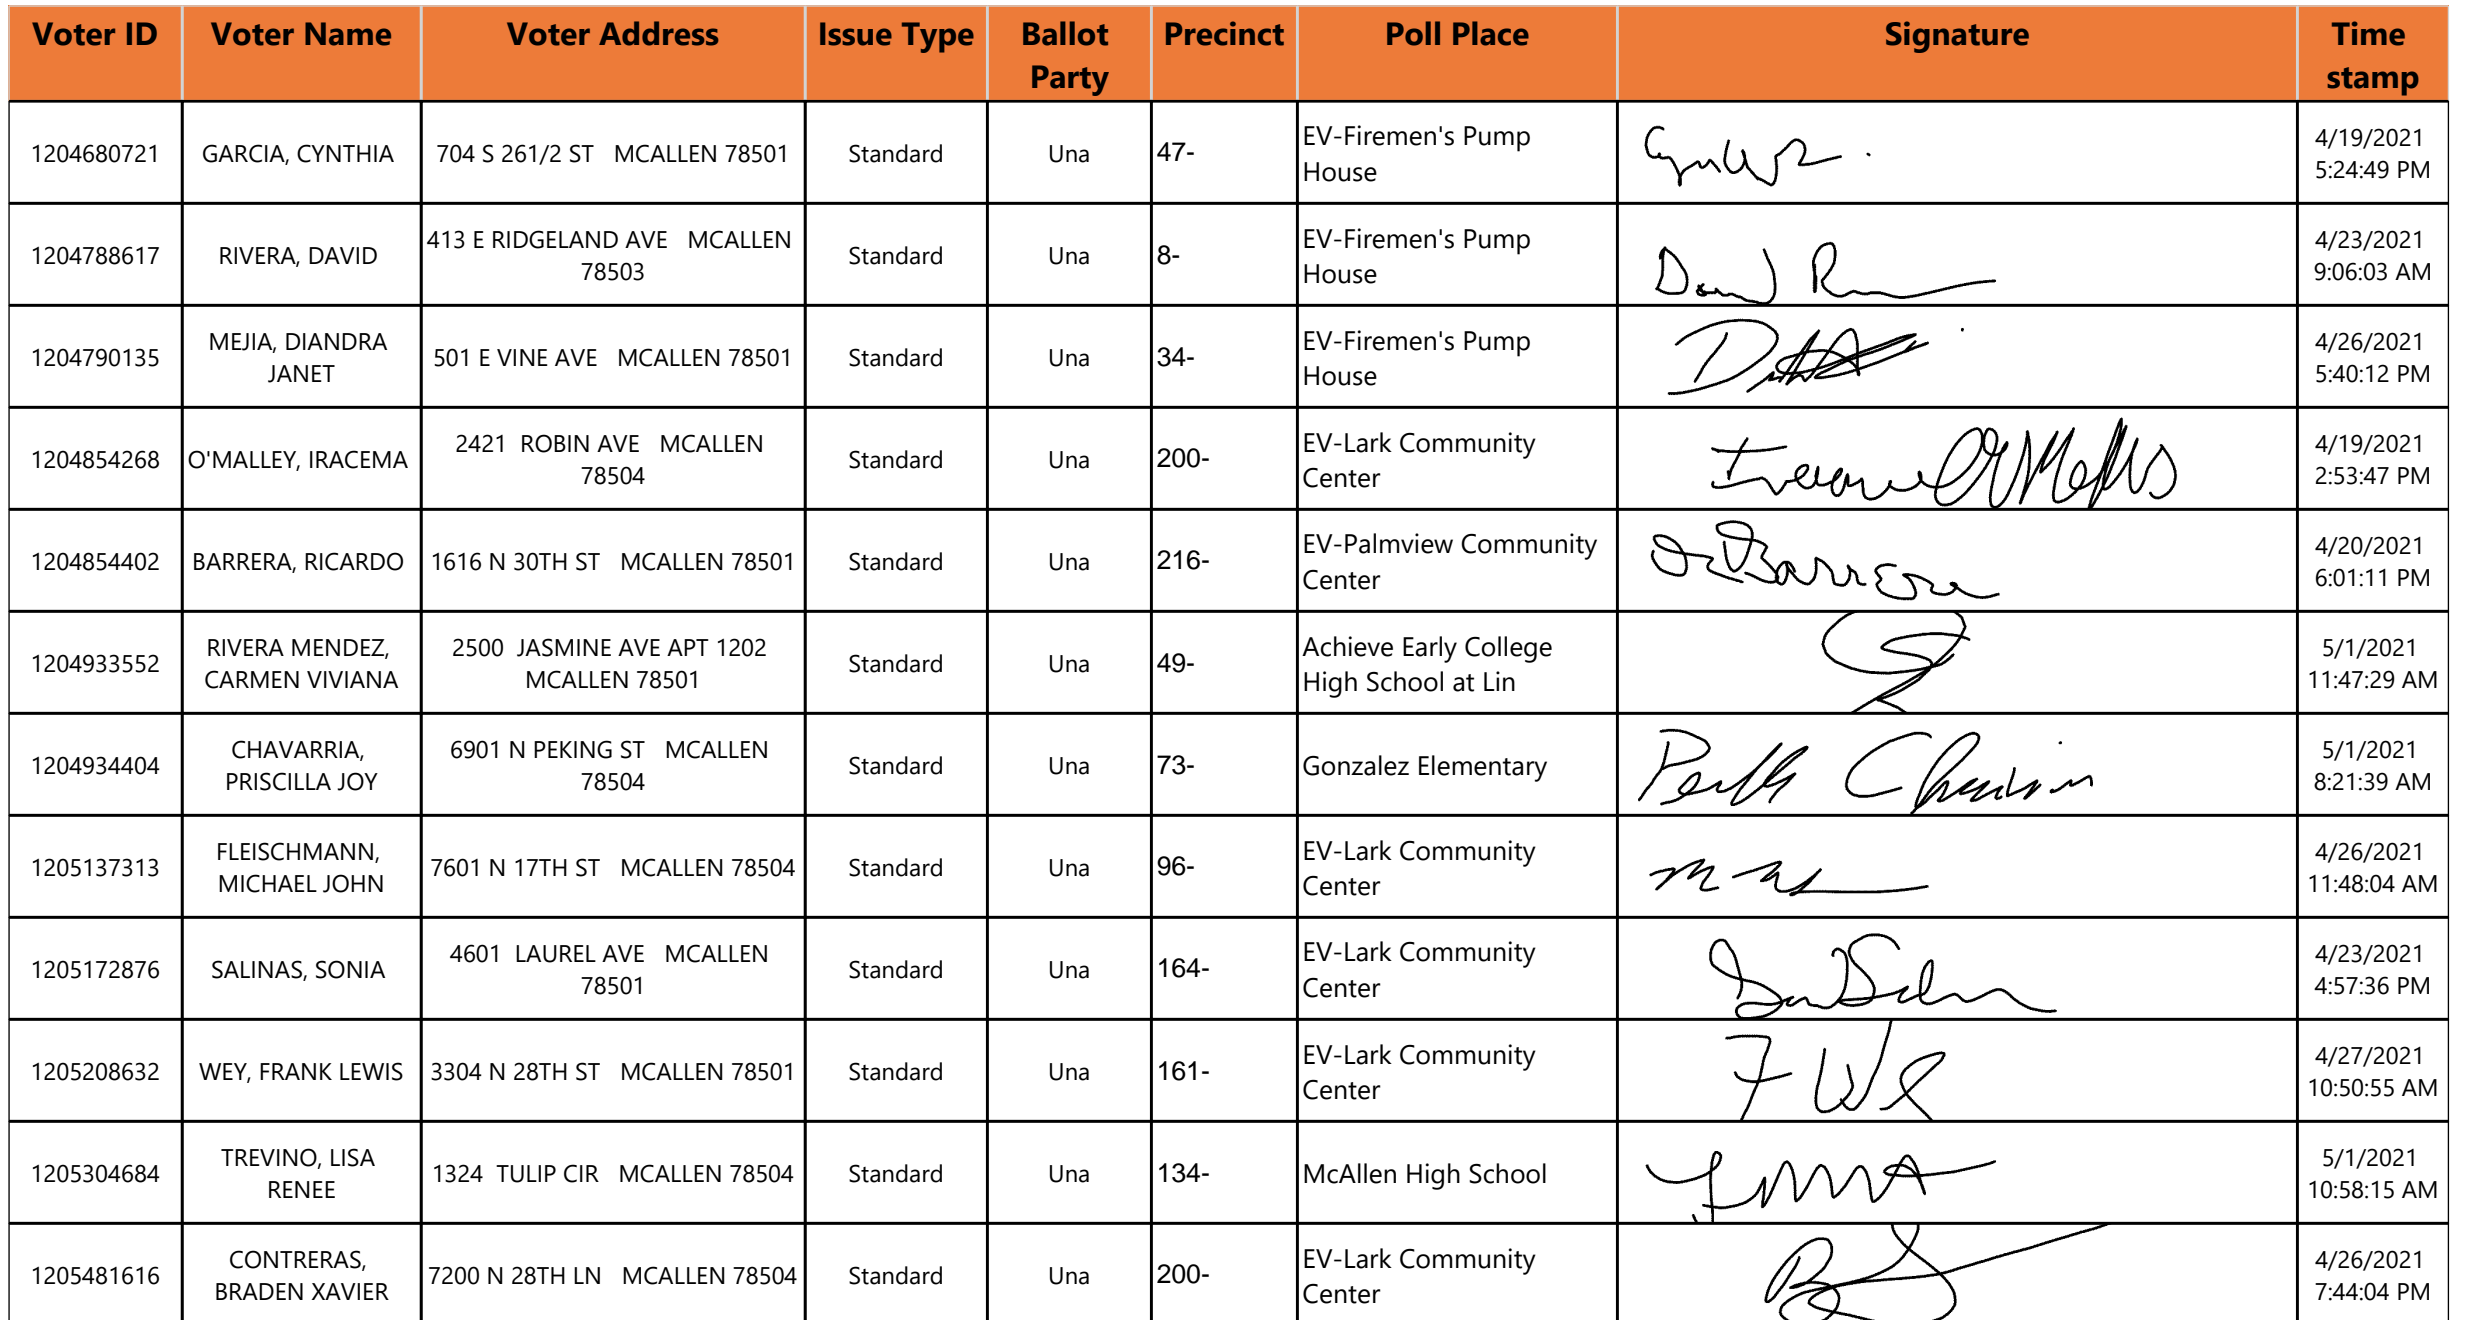 Voter ID Voter Name Voter Address Issue Type Ballot Party Precinct Poll Place Signature Time stamp
1204680721 GARCIA, CYNTHIA 704 S 261/2 ST MCALLEN 78501 Standard Una 47- EV-Firemen's Pump House 4/19/2021 5:24:49 PM
1204788617 RIVERA, DAVID 413 E RIDGELAND AVE MCALLEN 78503 Standard Una 8- EV-Firemen's Pump House 4/23/2021 9:06:03 AM
1204790135 MEJIA, DIANDRA JANET 501 E VINE AVE MCALLEN 78501 Standard Una 34- EV-Firemen's Pump House 4/26/2021 5:40:12 PM
1204854268 O'MALLEY, IRACEMA 2421 ROBIN AVE MCALLEN 78504 Standard Una 200- EV-Lark Community Center 4/19/2021 2:53:47 PM
1204854402 BARRERA, RICARDO 1616 N 30TH ST MCALLEN 78501 Standard Una 216- EV-Palmview Community Center 4/20/2021 6:01:11 PM
1204933552 RIVERA MENDEZ, CARMEN VIVIANA 2500 JASMINE AVE APT 1202 MCALLEN 78501 Standard Una 49- Achieve Early College High School at Lin 5/1/2021 11:47:29 AM
1204934404 CHAVARRIA, PRISCILLA JOY 6901 N PEKING ST MCALLEN 78504 Standard Una 73- Gonzalez Elementary 5/1/2021 8:21:39 AM
1205137313 FLEISCHMANN, MICHAEL JOHN 7601 N 17TH ST MCALLEN 78504 Standard Una 96- EV-Lark Community Center 4/26/2021 11:48:04 AM
1205172876 SALINAS, SONIA 4601 LAUREL AVE MCALLEN 78501 Standard Una 164- EV-Lark Community Center 4/23/2021 4:57:36 PM
1205208632 WEY, FRANK LEWIS 3304 N 28TH ST MCALLEN 78501 Standard Una 161- EV-Lark Community Center 4/27/2021 10:50:55 AM
1205304684 TREVINO, LISA RENEE 1324 TULIP CIR MCALLEN 78504 Standard Una 134- McAllen High School 5/1/2021 10:58:15 AM
1205481616 CONTRERAS, BRADEN XAVIER 7200 N 28TH LN MCALLEN 78504 Standard Una 200- EV-Lark Community Center 4/26/2021 7:44:04 PM